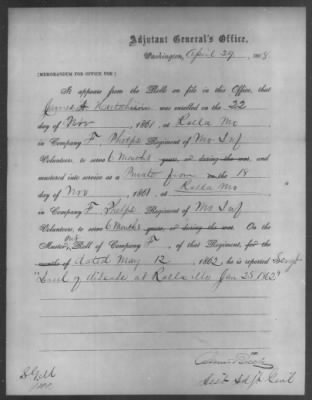 Adjutant General's Office,
Washington, April 29, 1868
[MEMORANDUM FOR OFFICE USE]
It appears from the Rolls on file in this Office, that
James A Hutchison was enrolled on the 22
day of Nov, 1861, at Rolla Mo
in Company F Phelps Regiment of Mo Inf
Volunteers, to serve 6 Months years, or during the war, and
mustered into service as a Private from on the 18
day of Nov, 1861, at Rolla Mo
in Company F Phelps Regiment of Mo Inf
Volunteers, to serve 6 Months years, or during the war. On the
Muster Out Roll of Company F, of that Regiment, for the
months of dated May 12, 1862, he is reported Sergt
"Died of disease at Rolla Mo Jan 25 1862"
Asst Adjt Genl